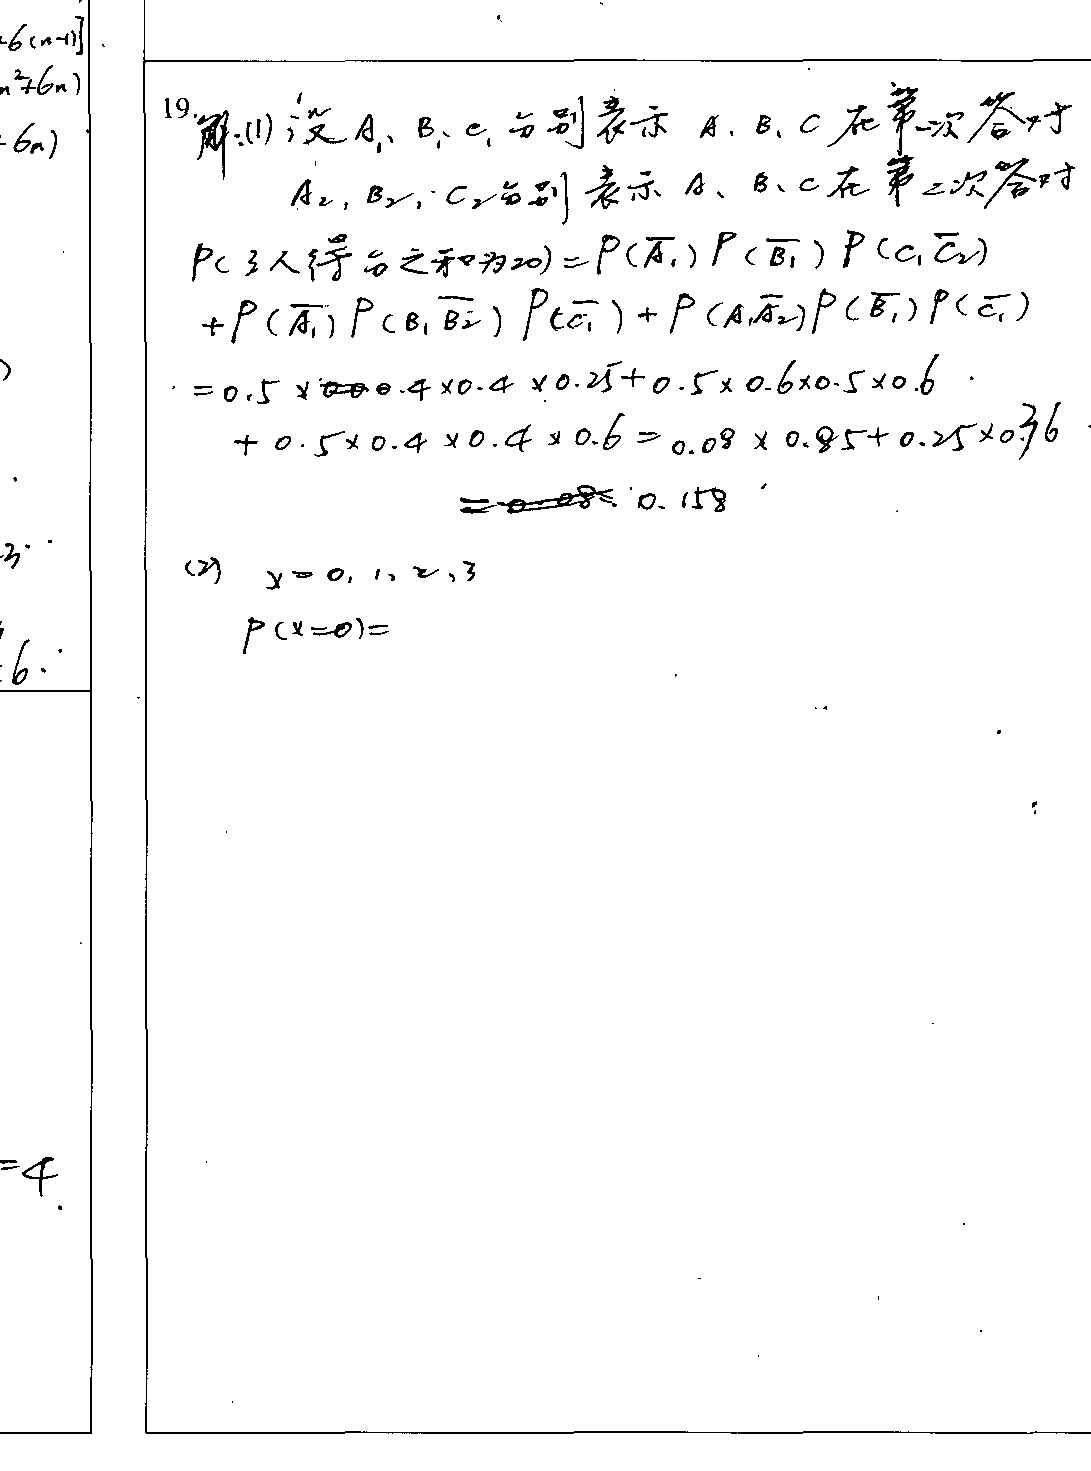 -6(n-1)]
n²+6n)
-6n)
19.
解:(1)设A₁、B₁、C₁分别表示 A、B、C在第一次答对
A₂，B₂，C₂分别表示 A、B、C在第二次答对
P(3人得分之和为20)=P(A̅₁)P(B̅₁)P(C₁C̅₂)
+P(A̅₁)P(B₁B̅₂)P(C̅₁)+P(A₁A̅₂)P(B̅₁)P(C̅₁)
=0.5×0.4×0.4×0.25+0.5×0.6×0.5×0.6
+0.5×0.4×0.4×0.6=0.08×0.85+0.25×0.36
0.158
(2) x=0,1,2,3
P(x=0)=
6.
=4.